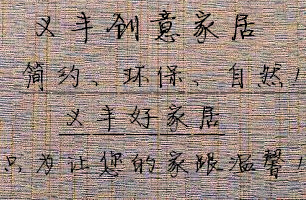 义丰创意家居
简约、环保、自然!
义丰好家居
只为让您的家跟温馨!